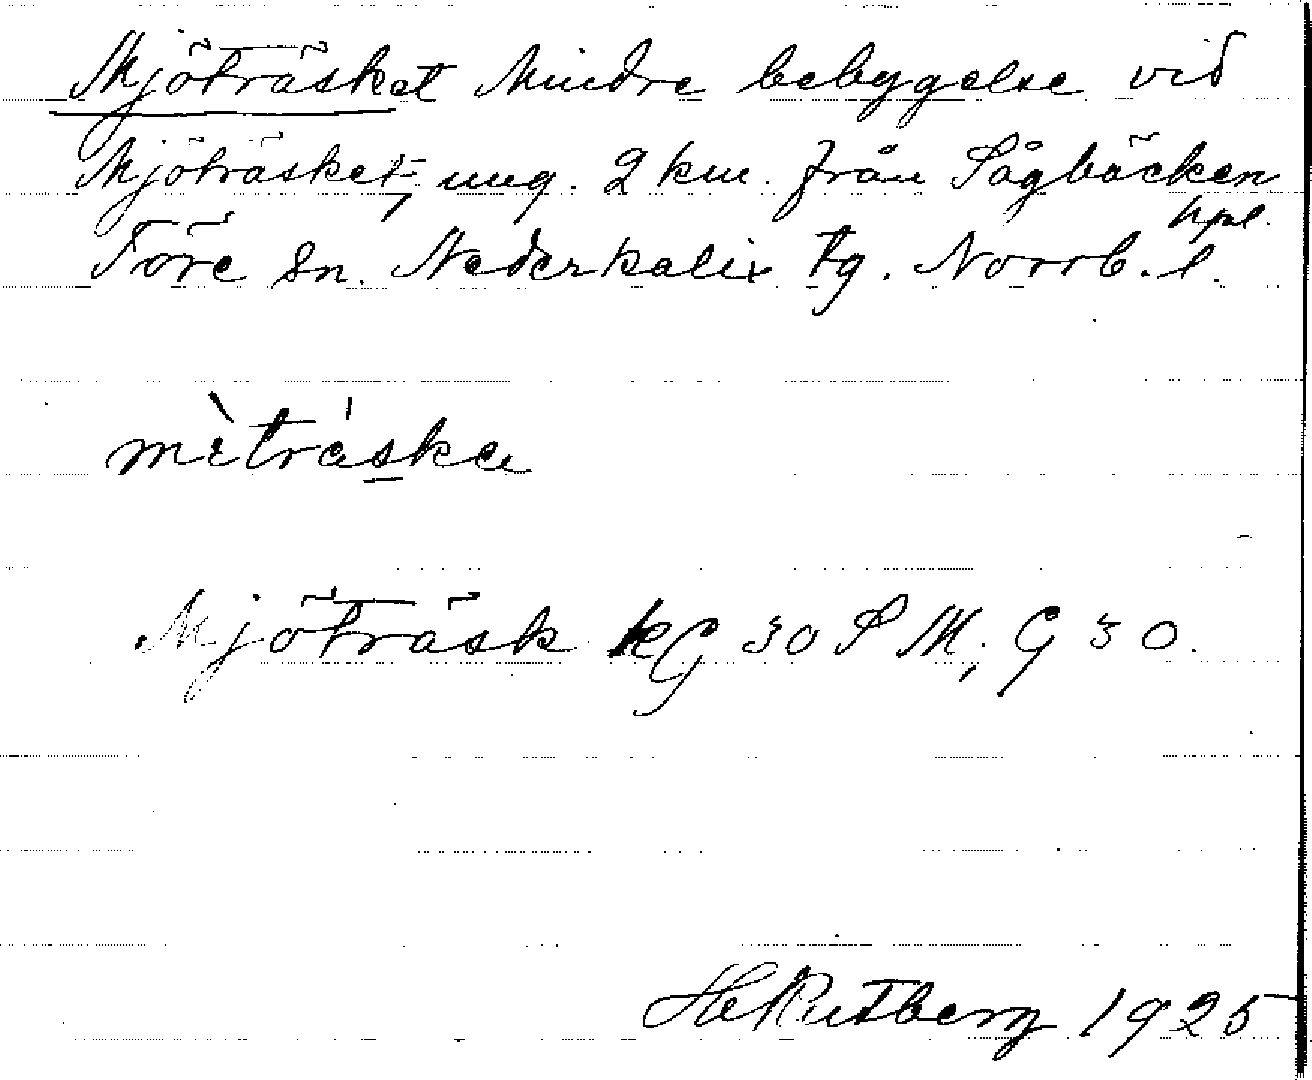 Mjöträsket Mindre bebyggelse vid
Mjöträsket, ung. 2 km. från Sågbäcken
hpl.
Töre sn. Nederkalix tg. Norrb. l.
mètráska
Mjöträsk kG 30 S M; G 30.
He Rutberg 1925